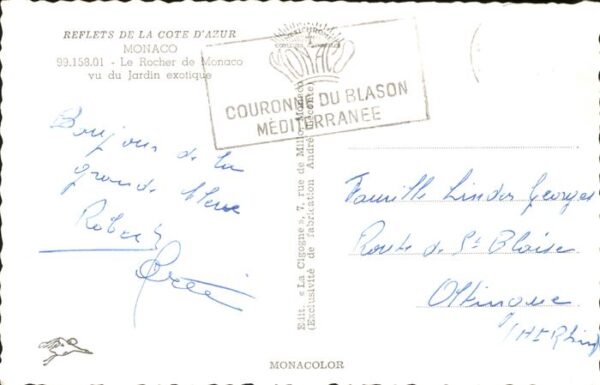 REFLETS DE LA COTE D'AZUR
MONACO
99.158.01 - Le Rocher de Monaco
vu du Jardin exotique
MONACO
COURONNE DU BLASON
MÉDITERRANÉE
Bonjour de la
grande bleue
Robert
Edit. « La Cigogne », 7, rue de Millo, Monaco
(Exclusivité de fabrication André
Famille Linder Georges
Route de St Blaise
MONACOLOR